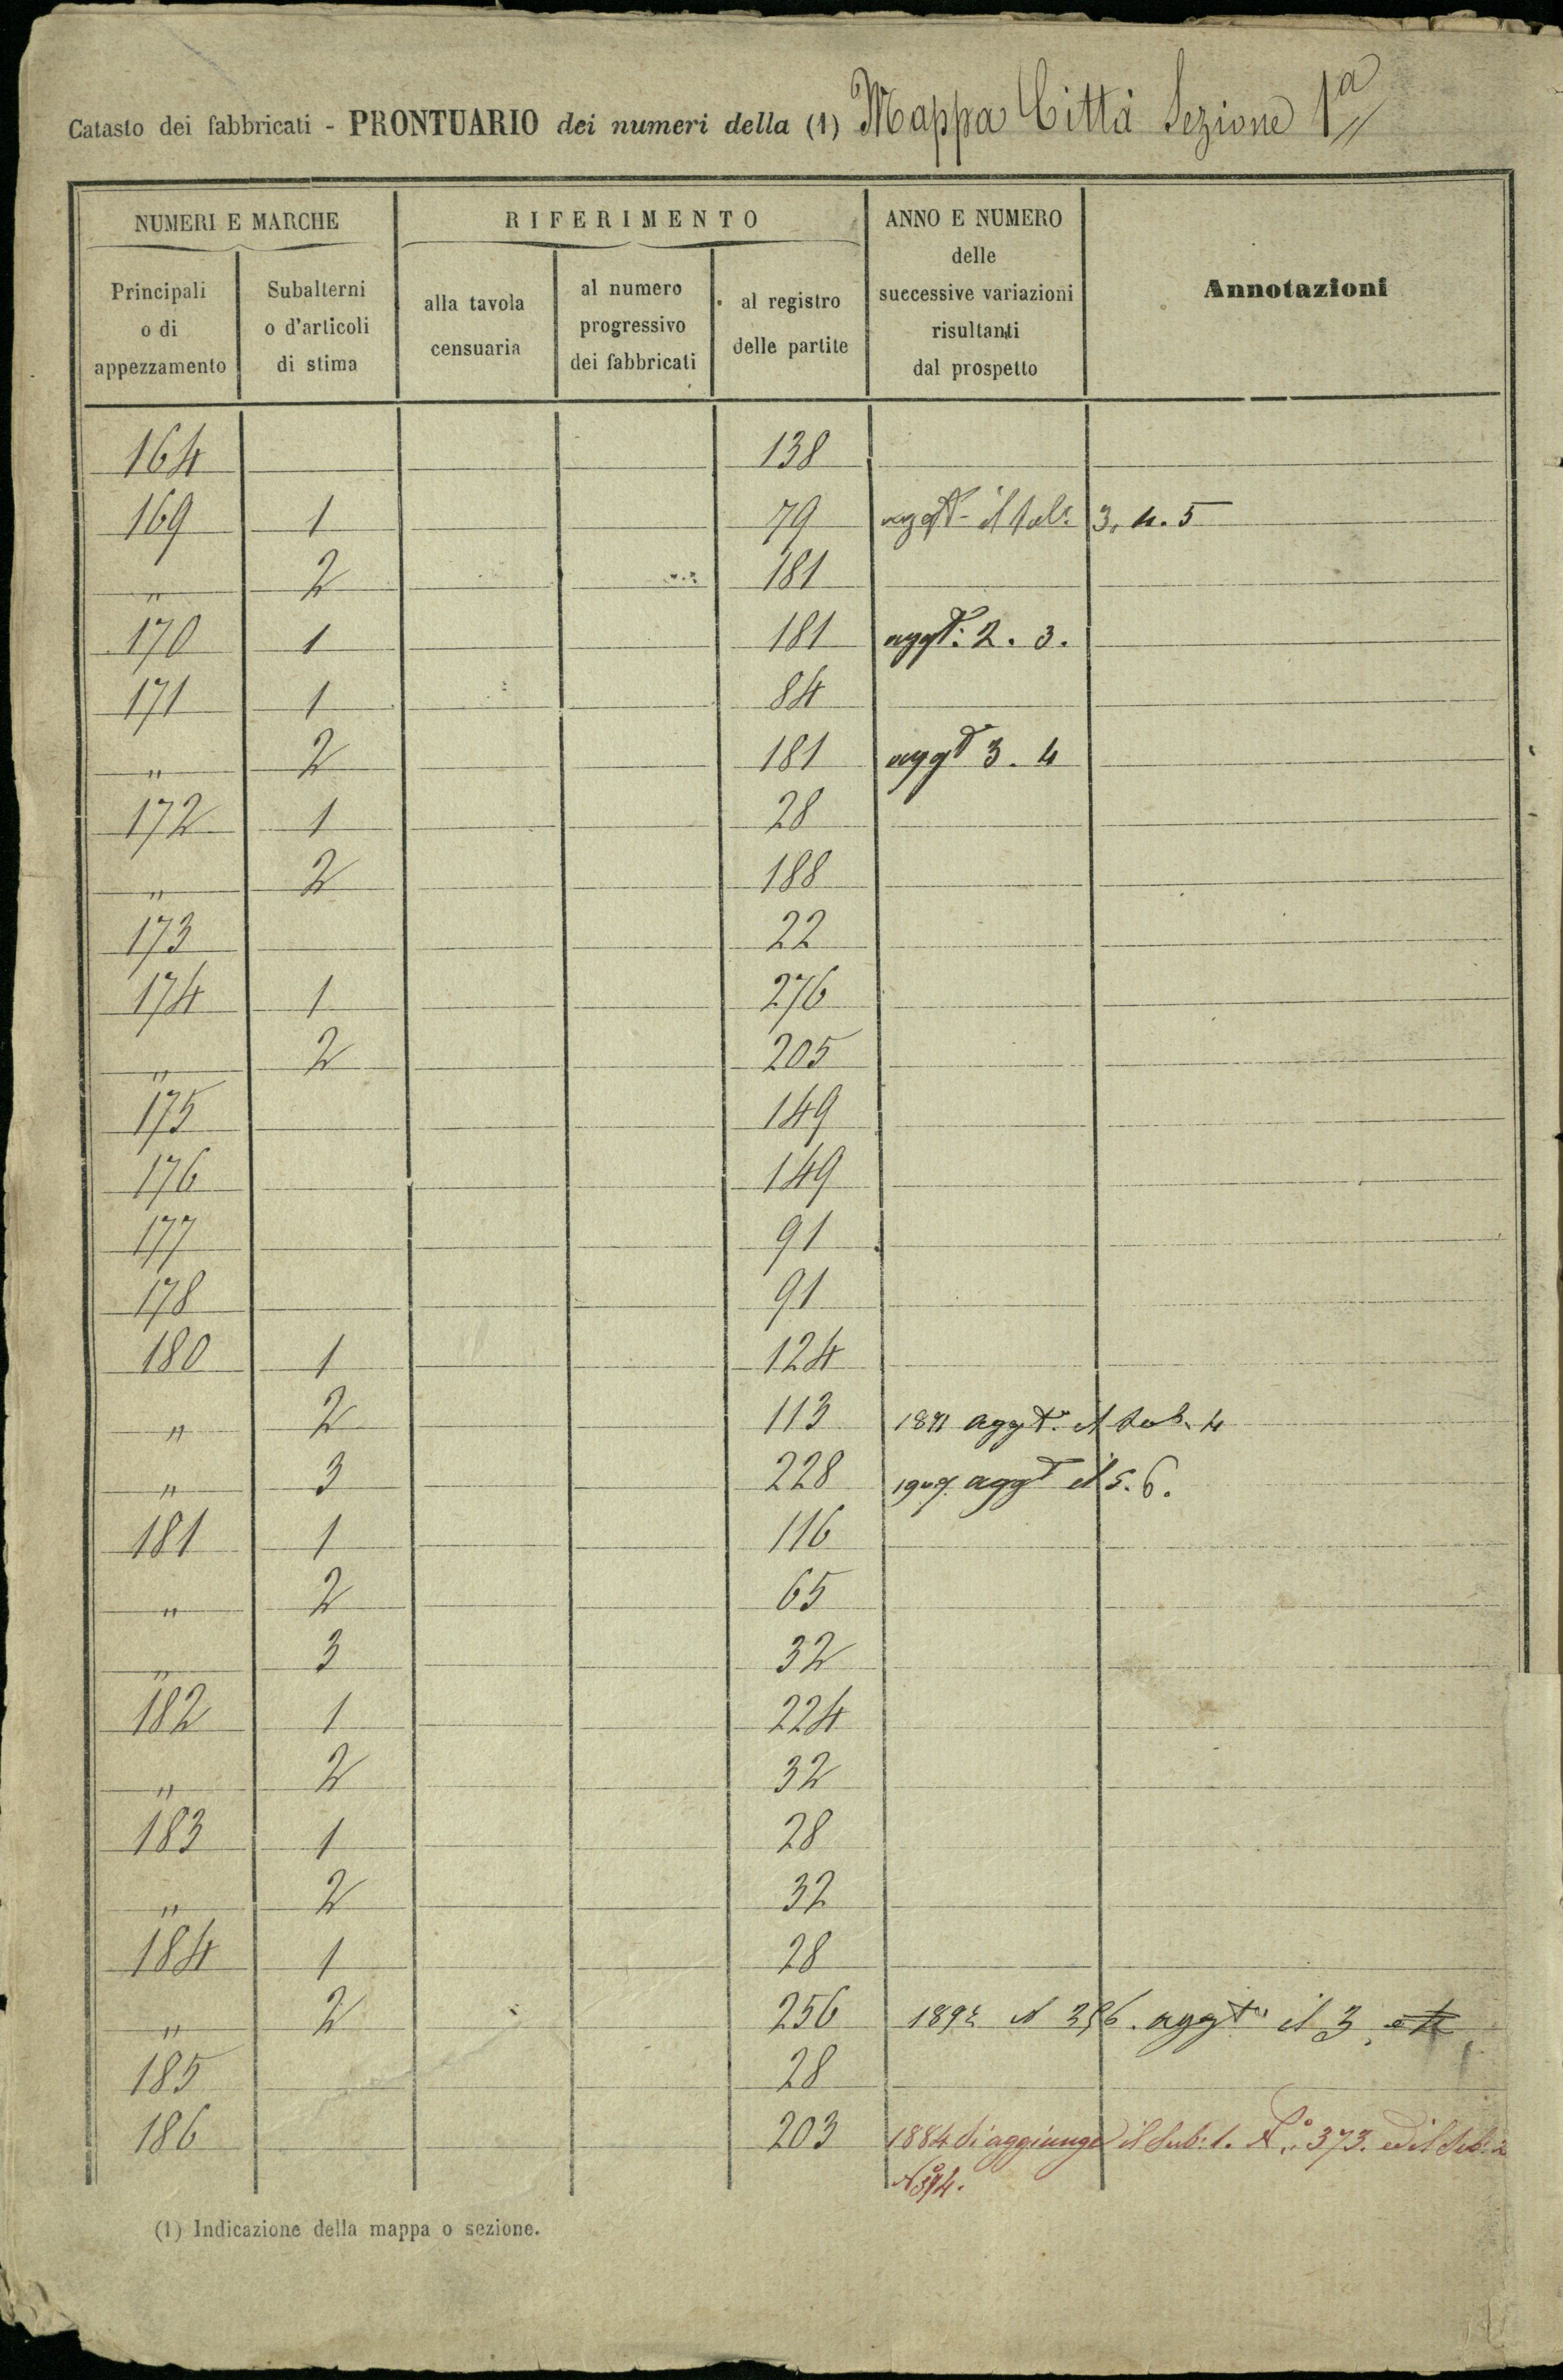 Catasto dei fabbricati - PRONTUARIO dei numeri della (1) Mappa Città Sezione 1a
NUMERI E MARCHE
RIFERIMENTO
ANNO E NUMERO delle successive variazioni risultanti dal prospetto
Annotazioni
Principali o di appezzamento
Subalterni o d'articoli di stima
alla tavola censuaria
al numero progressivo dei fabbricati
al registro delle partite
164 138
169 1 79 aggto il sub. 3, 4. 5
" 2 181
170 1 181 aggto: 2. 3.
171 1 84
" 2 181 aggto 3. 4
172 1 28
" 2 188
173 22
174 1 276
" 2 205
175 149
176 149
177 91
178 91
180 1 124
" 2 113 aggto. il sub. 4
" 3 228 aggto il 5. 6.
181 1 116
" 2 65
" 3 32
182 1 224
" 2 32
183 1 28
" 2 32
184 1 28
" 2 256 aggto il 3,
185 28
186 203 1884 Si aggiunge il Sub: 1. No 373. ed il Sub: 2
No 374.
(1) Indicazione della mappa o sezione.